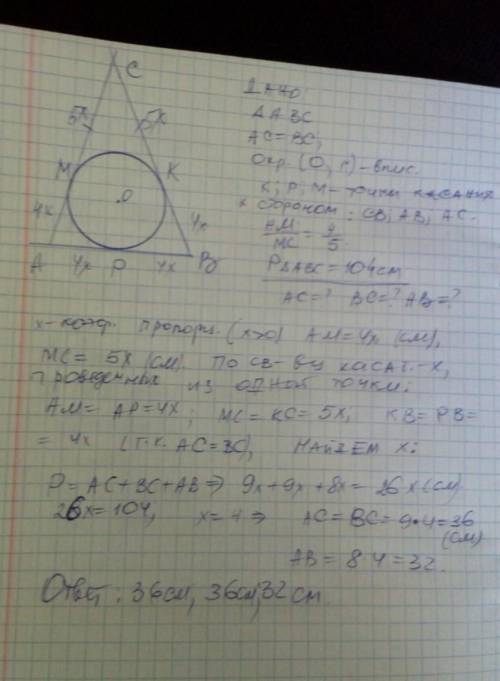 C
5x
5x
M
K
O
4x
4x
A
4x
P
4x
B
Дано
Δ ABC
AC = BC,
Окр. (O, r) - впис.
K; P; M - точки касания
к сторонам: CB, AB, AC.
AM/MC = 4/5
P ΔABC = 104 см
AC = ? BC = ? AB = ?
x - коэф. пропорц. (x>0) AM = 4x (см),
MC = 5x (см). По св-ву касат.-х,
проведённых из одной точки:
AM = AP = 4x; MC = KC = 5x, KB = PB =
= 4x (т.к. AC = BC), Найдём x:
P = AC + BC + AB ⇒ 9x + 9x + 8x = 26x (см)
26x = 104, x = 4 ⇒ AC = BC = 9·4 = 36
(см)
AB = 8·4 = 32.
Ответ: 36 см, 36 см, 32 см.